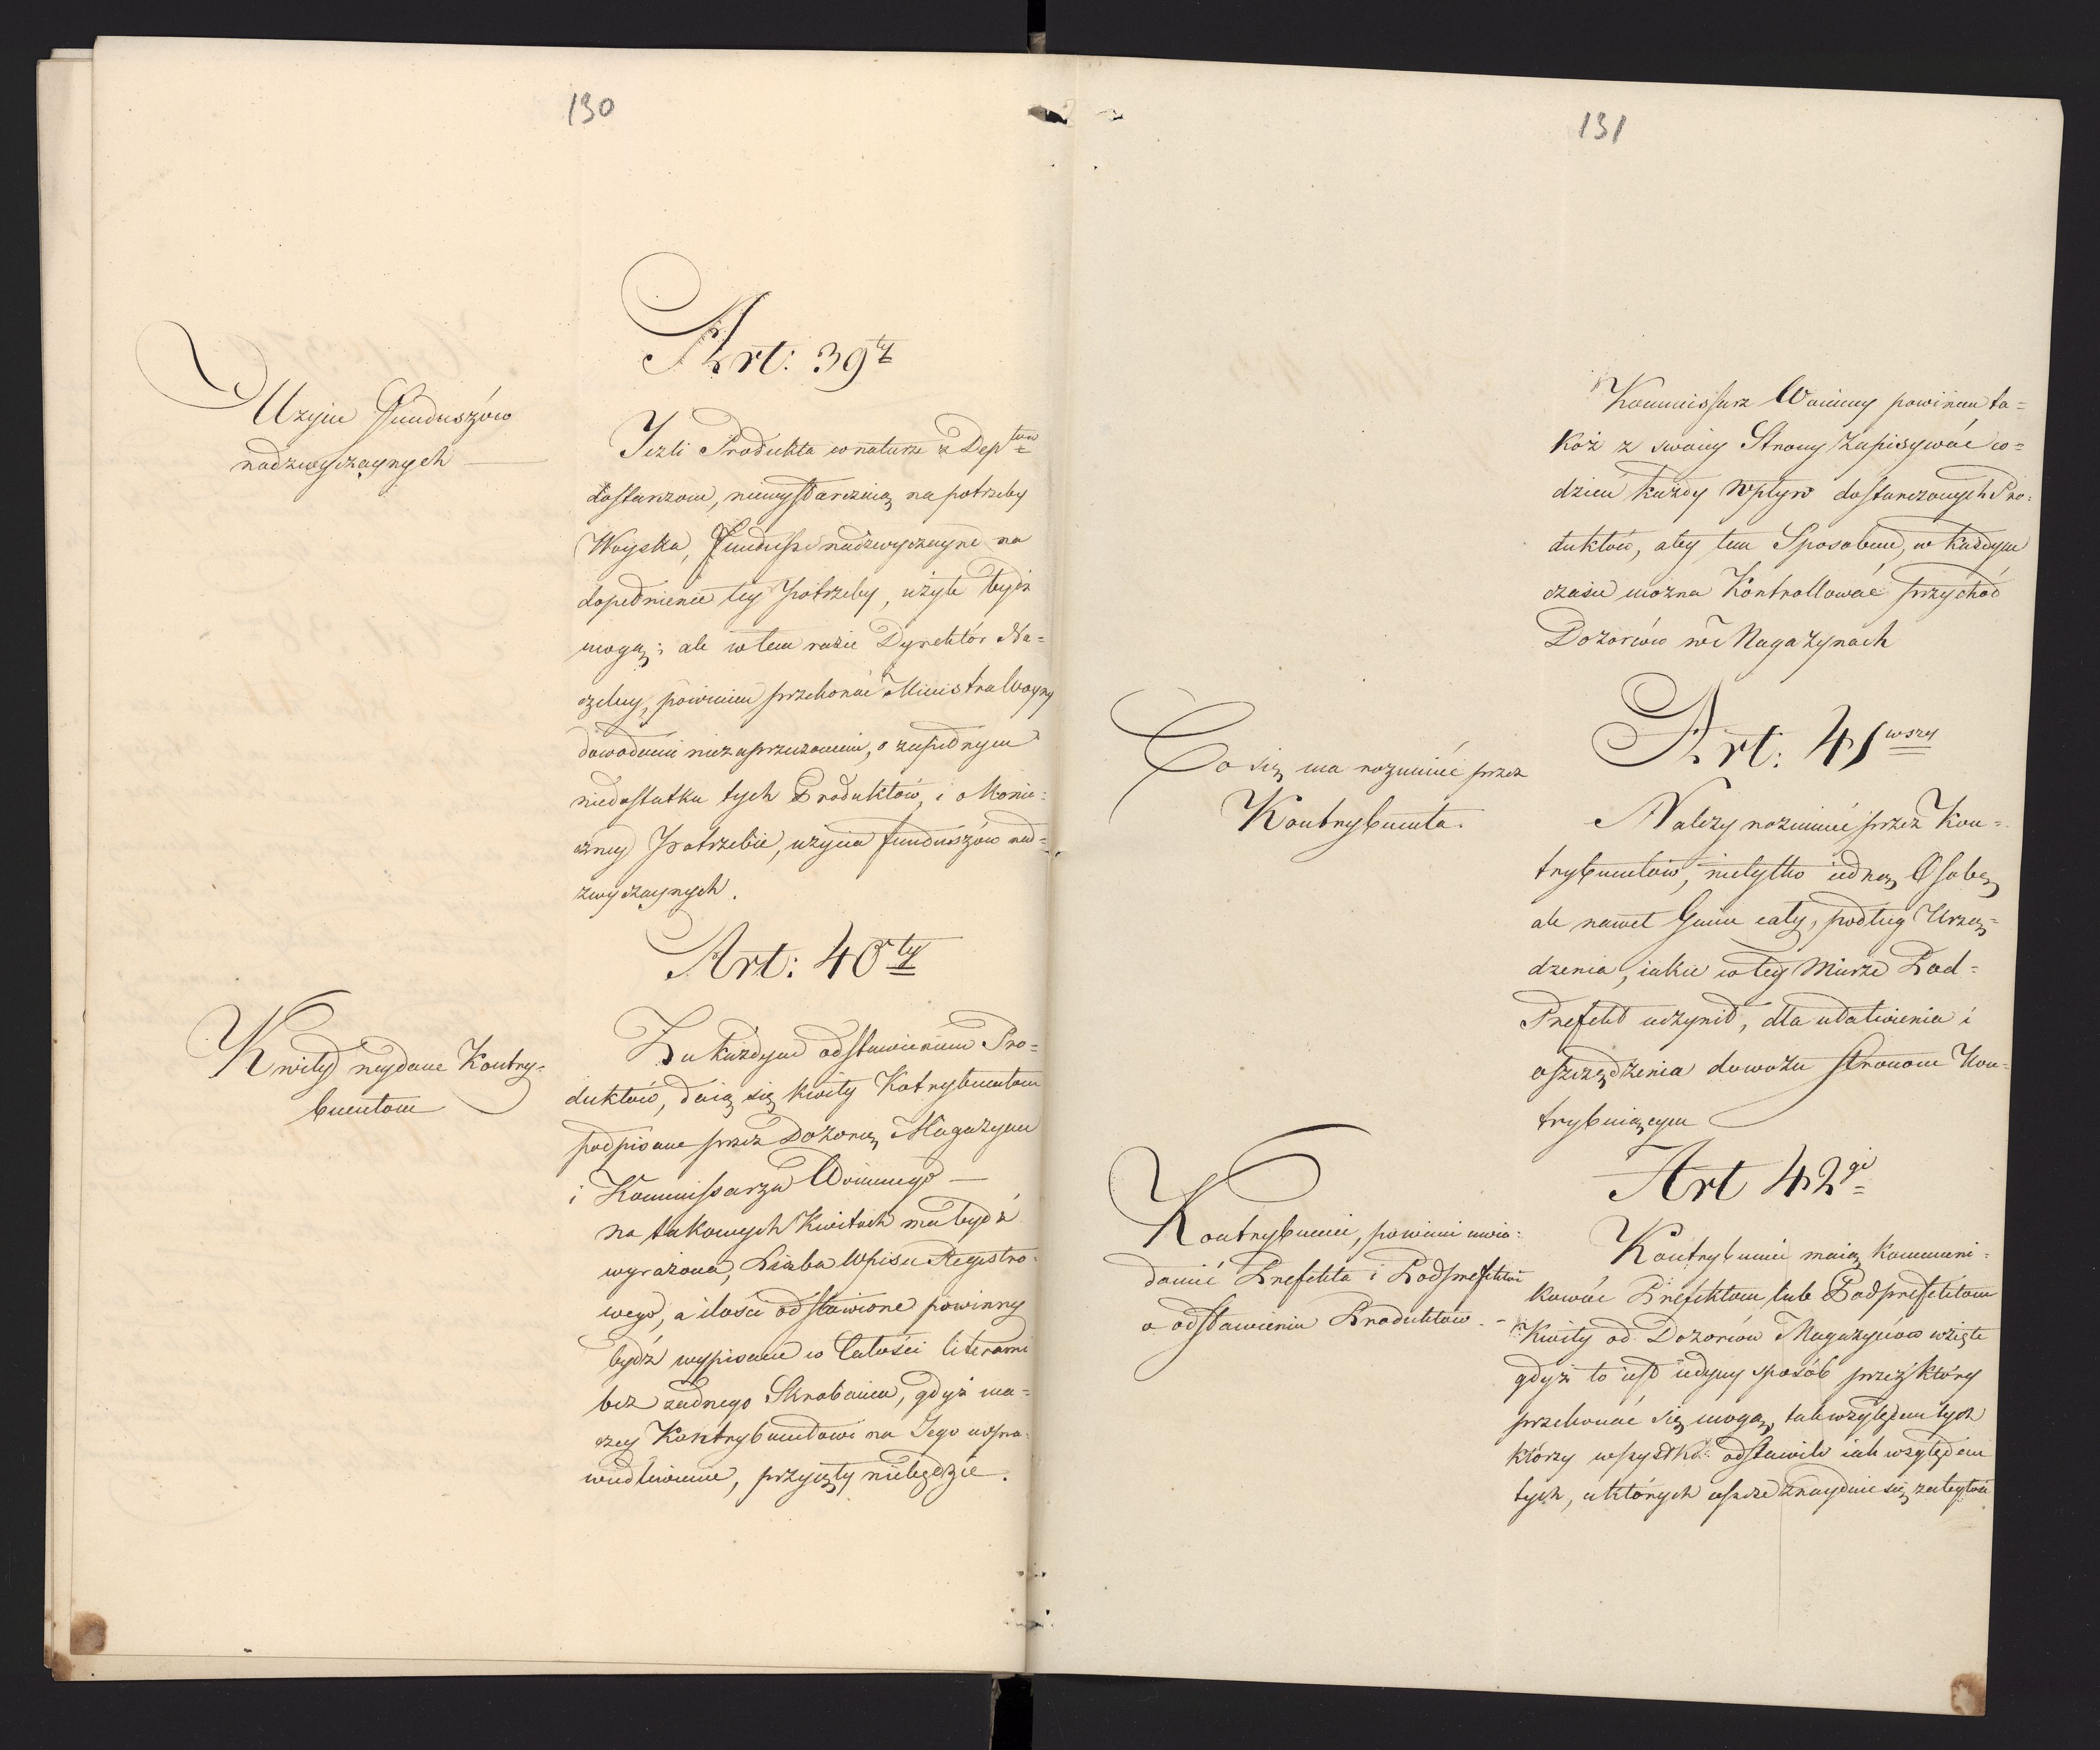 130
Art: 39ty
Użycie Funduszów
nadzwyczaynych
Jezli Produkta w naturze z Deptow
dostarzone, niewystarczaią na potrzeby
Woyska, Fundusze nadzwyczayne na
dopełnienie tey Potrzeby, użyte bydź
mogą; ale w tem razie Dyrektór Na=
czelny, powinien przekonać Ministra Woyny
dowodami niezaprzeczonemi, o zupełnym
niedostatku tych Produktów, i o Konie=
czney Potrzebie, użycia funduszów nad=
zwyczaynych.
Art: 40ty
Kwity wydane Kontry=
buentom
Za każdym odstawieniem Pro=
duktów, daią się kwity Kotrybuentom
podpisane przez Dozorcę Magazynu
i Kommissarza Woiennego —
na takowych Kwitach ma bydź
wyrażona, Liczba Wpisu Registro=
wego, a ilości odstawione powinny
bydź wypisane w Całości literami
bez żadnego Skrobania, gdyż ina=
czey Kontrybuentowi na Jego uspra=
wiedliwienie, przyięty niebędzie.
131
Kommissarz Woienny powinien ta=
koż z swoiey Strony Zapisywać co=
dzien każdy Wpływ dostarczonych Pro=
duktów, aby tem Sposobem, w każdym
czasie można Kontrollować przychód
Dozorców w Magazynach
Art: 41wszy
Co się ma rozumieć przez
Kontrybuenta.
Należy rozumieć przez Kon=
trybuentów, nietylko iedną Osobę,
ale nawet Gmin cały, podług Urzą=
dzenia, iakie w tey Mierze Pod=
Prefekt uczynił, dla ułatwienia i
oszczędzenia dowozu stronom Kon=
trybuiącym
Art 42gi
Kontrybuenci, powinni uwia=
domić Prefekta i Podprefektów
o odstawieniu Produktów. —
Kontrybuenci maią kommuni=
kować Prefektom lub Podprefektom
Kwity od Dozorców Magazynów wzięte
gdyż to iest iedyny sposób przez który
przekonać się mogą, tak względem tych
którzy wszystko odstawili iak względem
tych, u których ieszcze znayduie się zaległość